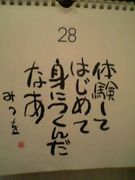 28
体験して
はじめて
身につくんだ
なあ
みつを